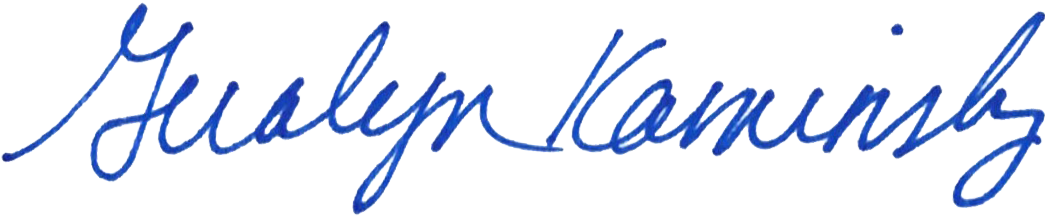 Geralyn Kaminsky